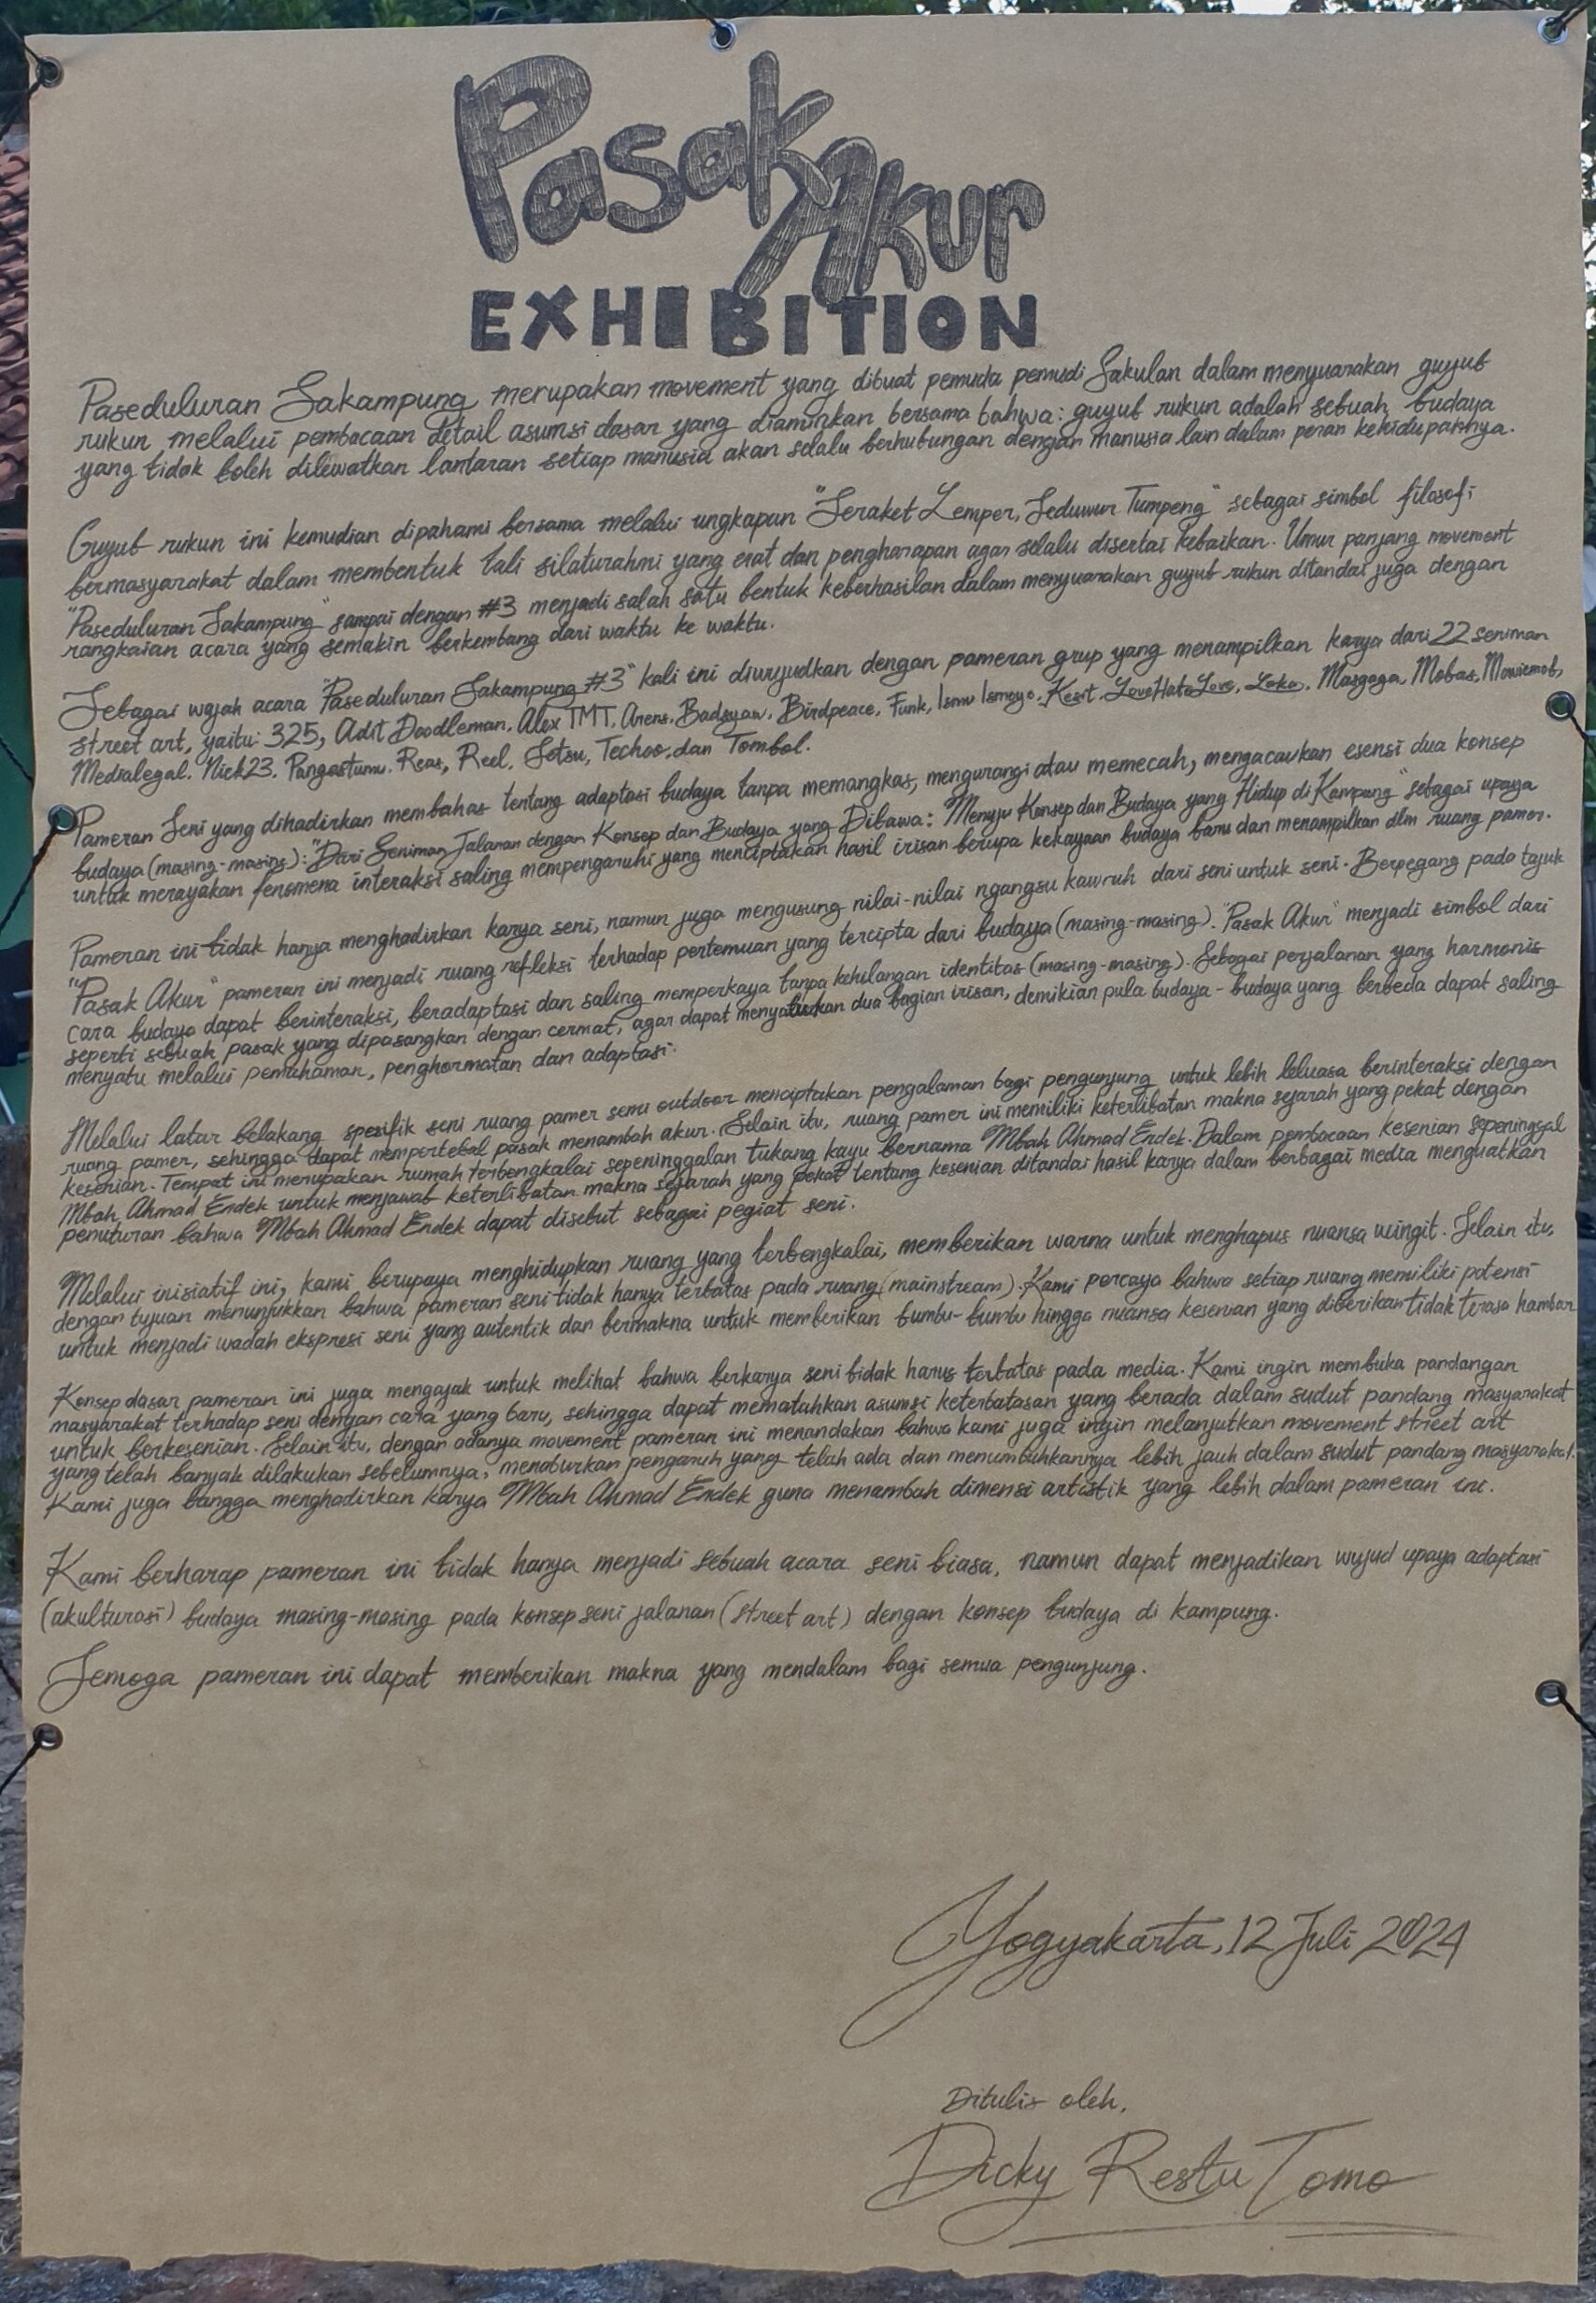 Pasak
Akur
EXHIBITION
Paseduluran Sakampung merupakan movement yang dibuat pemuda pemudi Sakulan dalam menyuarakan guyub
rukun melalui pembacaan detail asumsi dasar yang diaminkan bersama bahwa: guyub rukun adalah sebuah budaya
yang tidak boleh dilewatkan lantaran setiap manusia akan selalu berhubungan dengan manusia lain dalam peran kehidupannya.
Guyub rukun ini kemudian dipahami bersama melalui ungkapan "Seraket Lemper, Seduwur Tumpeng" sebagai simbol filosofi
bermasyarakat dalam membentuk tali silaturahmi yang erat dan pengharapan agar selalu disertai kebaikan. Umur panjang movement
"Paseduluran Sakampung" sampai dengan #3 menjadi salah satu bentuk keberhasilan dalam menyuarakan guyub rukun ditandai juga dengan
rangkaian acara yang semakin berkembang dari waktu ke waktu.
Sebagai wajah acara "Paseduluran Sakampung #3" kali ini diwujudkan dengan pameran grup yang menampilkan karya dari 22 seniman
street art, yaitu: 325, Adit Doodleman, Alex TMT, Arens, Badsyaw, Birdpeace, Funk, Ismu Ismoyo, Kesit, LoveHateLove, Loko, Masgega, Mobas, Mowiemob,
Medialegal, Nick23, Pangestumu, Reas, Reel, Setsu, Techoo, dan Tombol.
Pameran Seni yang dihadirkan membahas tentang adaptasi budaya tanpa memangkas, mengurangi atau memecah, mengacaukan esensi dua konsep
budaya (masing-masing): "Dari Seniman Jalanan dengan Konsep dan Budaya yang Dibawa: Menyu Konsep dan Budaya yang Hidup di Kampung" sebagai upaya
untuk merayakan fenomena interaksi saling mempengaruhi yang menciptakan hasil irisan berupa kekayaan budaya baru dan menampilkan dlm ruang pamer.
Pameran ini tidak hanya menghadirkan karya seni, namun juga mengusung nilai-nilai ngangsu kawruh dari seni untuk seni. Berpegang pada tajuk
"Pasak Akur" pameran ini menjadi ruang refleksi terhadap pertemuan yang tercipta dari budaya (masing-masing). "Pasak Akur" menjadi simbol dari
cara budaya dapat berinteraksi, beradaptasi dan saling memperkaya tanpa kehilangan identitas (masing-masing). Sebagai perjalanan yang harmonis
seperti sebuah pasak yang dipasangkan dengan cermat, agar dapat menyatukan dua bagian irisan, demikian pula budaya-budaya yang berbeda dapat saling
menyatu melalui pemahaman, penghormatan dan adaptasi.
Melalui latar belakang spesifik seni ruang pamer semi outdoor menciptakan pengalaman bagi pengunjung untuk lebih leluasa berinteraksi dengan
ruang pamer, sehingga dapat mempertebal pasak menambah akur. Selain itu, ruang pamer ini memiliki keterlibatan makna sejarah yang pekat dengan
kesenian. Tempat ini merupakan rumah terbengkalai sepeninggalan tukang kayu bernama Mbah Ahmad Endek. Dalam pembacaan kesenian sepeninggal
Mbah Ahmad Endek untuk menjawab keterlibatan makna sejarah yang pekat tentang kesenian ditandai hasil karya dalam berbagai media menguatkan
penuturan bahwa Mbah Ahmad Endek dapat disebut sebagai pegiat seni.
Melalui inisiatif ini, kami berupaya menghidupkan ruang yang terbengkalai, memberikan warna untuk menghapus nuansa wingit. Selain itu,
dengan tujuan menunjukkan bahwa pameran seni tidak hanya terbatas pada ruang (mainstream). Kami percaya bahwa setiap ruang memiliki potensi
untuk menjadi wadah ekspresi seni yang autentik dan bermakna untuk memberikan bumbu-bumbu hingga nuansa kesenian yang diberikan tidak terasa hambar
Konsep dasar pameran ini juga mengajak untuk melihat bahwa berkarya seni tidak harus terbatas pada media. Kami ingin membuka pandangan
masyarakat terhadap seni dengan cara yang baru, sehingga dapat mematahkan asumsi keterbatasan yang berada dalam sudut pandang masyarakat
untuk berkesenian. Selain itu, dengan adanya movement pameran ini menandakan bahwa kami juga ingin melanjutkan movement street art
yang telah banyak dilakukan sebelumnya, menaburkan pengaruh yang telah ada dan menumbuhkannya lebih jauh dalam sudut pandang masyarakat.
Kami juga bangga menghadirkan karya Mbah Ahmad Endek guna menambah dimensi artistik yang lebih dalam pameran ini.
Kami berharap pameran ini tidak hanya menjadi sebuah acara seni biasa, namun dapat menjadikan wujud upaya adaptasi
(akulturasi) budaya masing-masing pada konsep seni jalanan (street art) dengan konsep budaya di kampung.
Semoga pameran ini dapat memberikan makna yang mendalam bagi semua pengunjung.
Yogyakarta, 12 Juli 2024
Ditulis oleh,
Dicky Restu Tomo